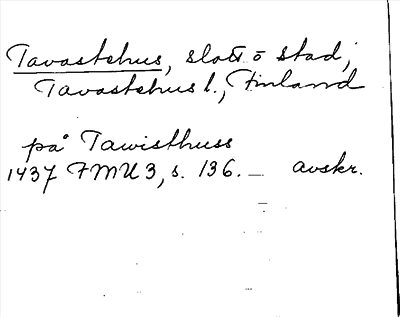 Tavastehus, slott o stad;
Tavastehus l., Finland
på Tawisthuss
1437 FMU 3, s. 136. — avskr.